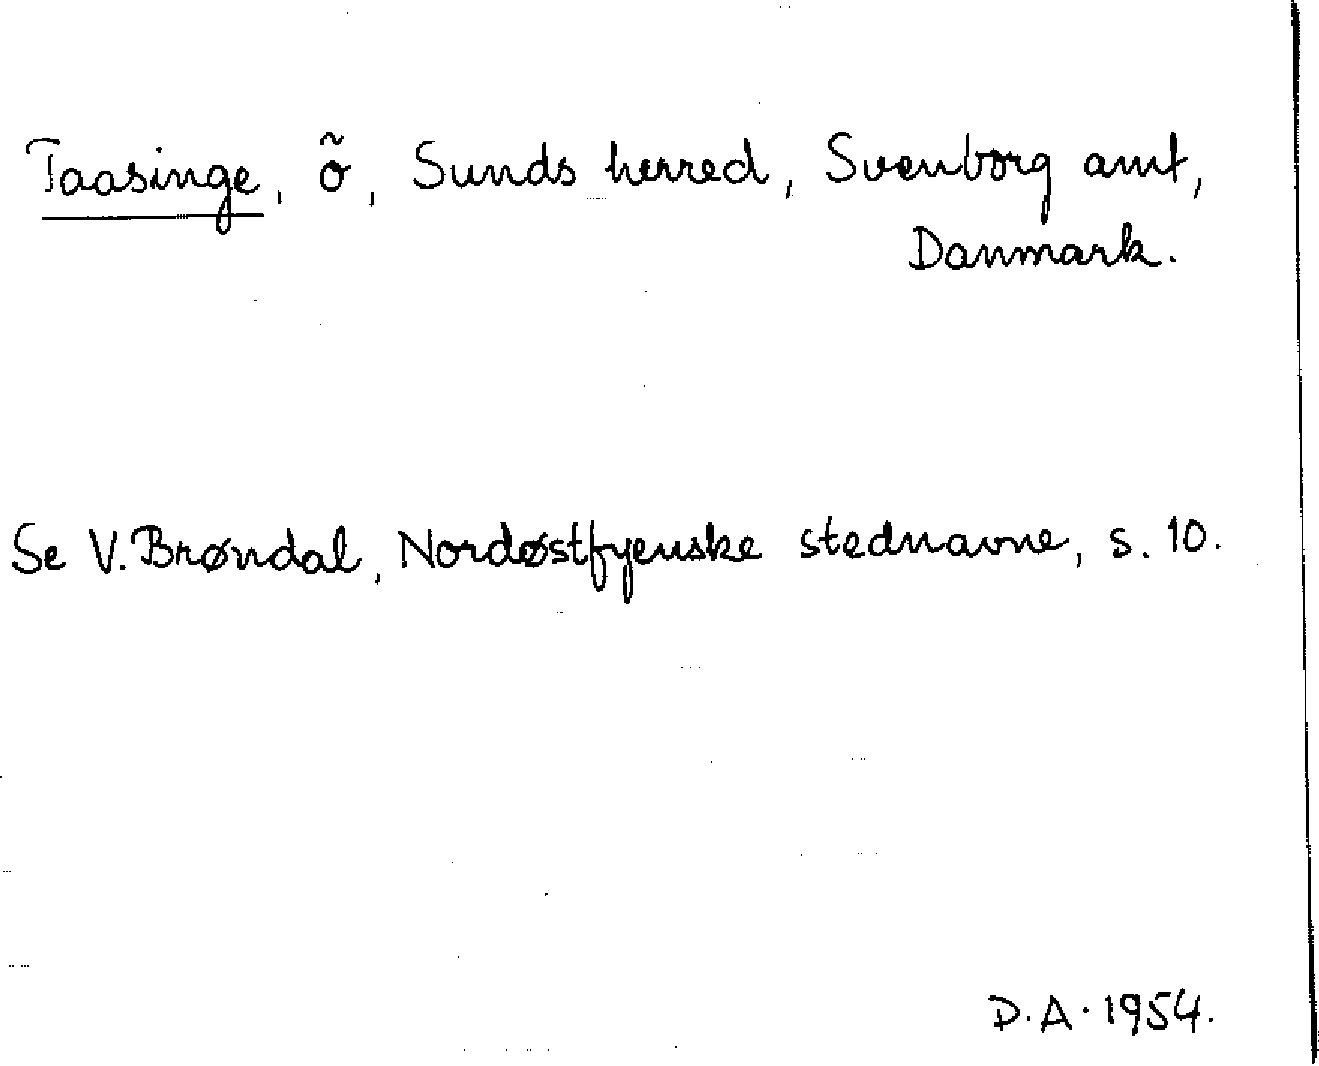 Taasinge, õ, Sunds herred, Svenborg amt,
Danmark.
Se V. Brøndal, Nordøstfyenske stednavne, s. 10.
D.A. 1954.